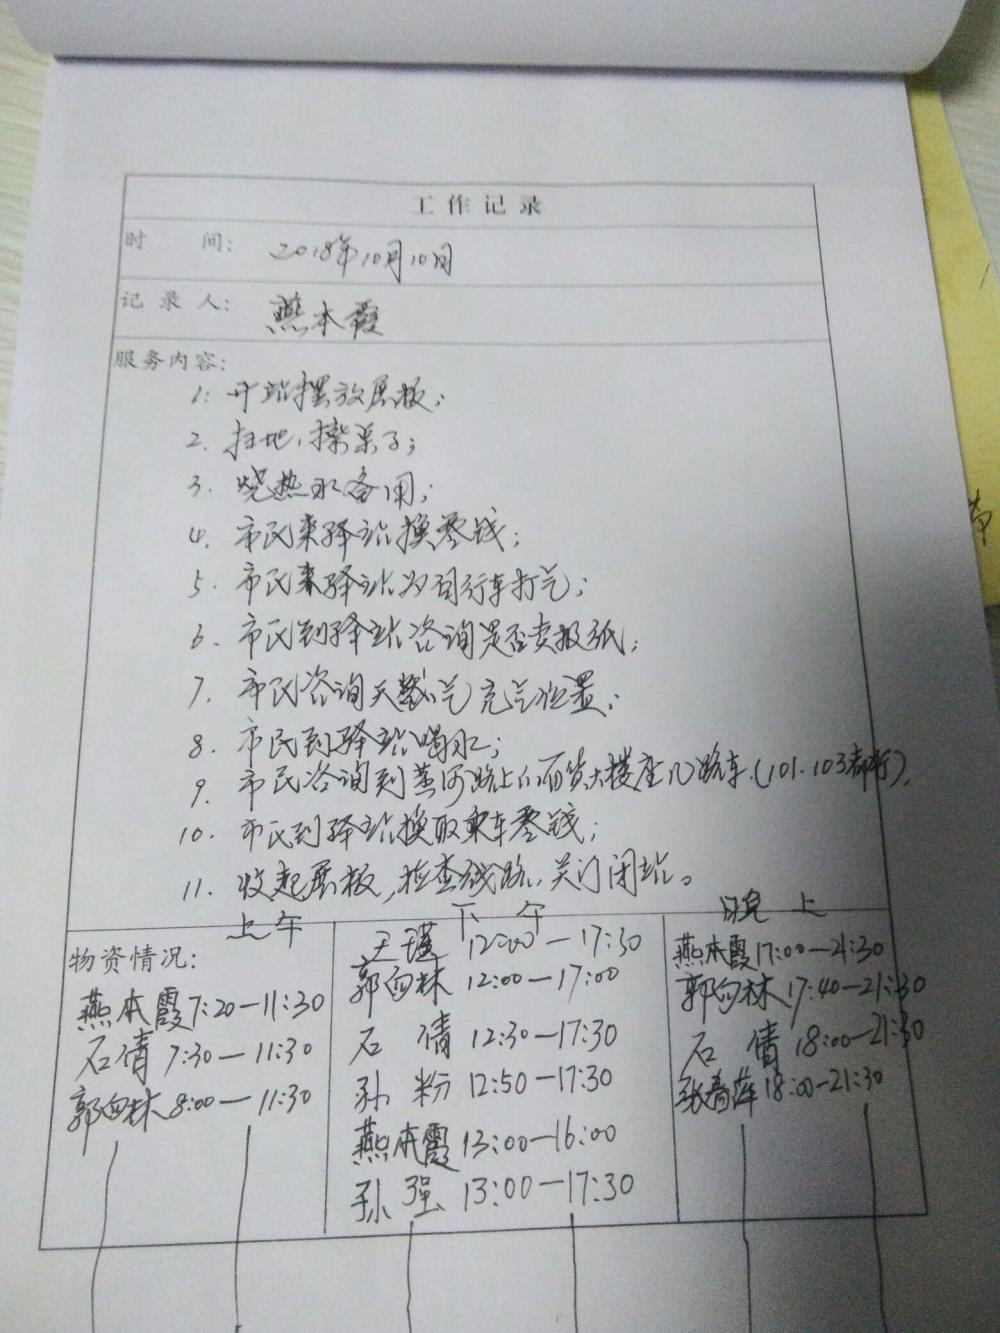 工作记录
时 间: 2018年10月10日
记录人: 燕本霞
服务内容:
1. 开站摆放展板;
2. 扫地,擦桌子;
3. 烧热水备用;
4. 市民来驿站换零钱;
5. 市民来驿站为自行车打气;
6. 市民到驿站咨询是否卖报纸;
7. 市民咨询天然气充气位置;
8. 市民到驿站喝水;
9. 市民咨询到 河路上的百货大楼座几路车.(101.103都行).
10. 市民到驿站换取乘车零钱;
11. 收起展板,检查线路,关门闭站。
上午
物资情况:
燕本霞 7:20—11:30
石倩 7:30—11:30
郭向林 8:00—11:30
下 午
王瑾 12:00—17:30
郭向林 12:00—17:00
石 倩 12:30—17:30
孙 粉 12:50—17:30
燕本霞 13:00—16:00
孙 强 13:00—17:30
晚 上
燕本霞 17:00—21:30
郭向林 17:40—21:30
石 倩 18:00—21:30
张春萍 18:00—21:30